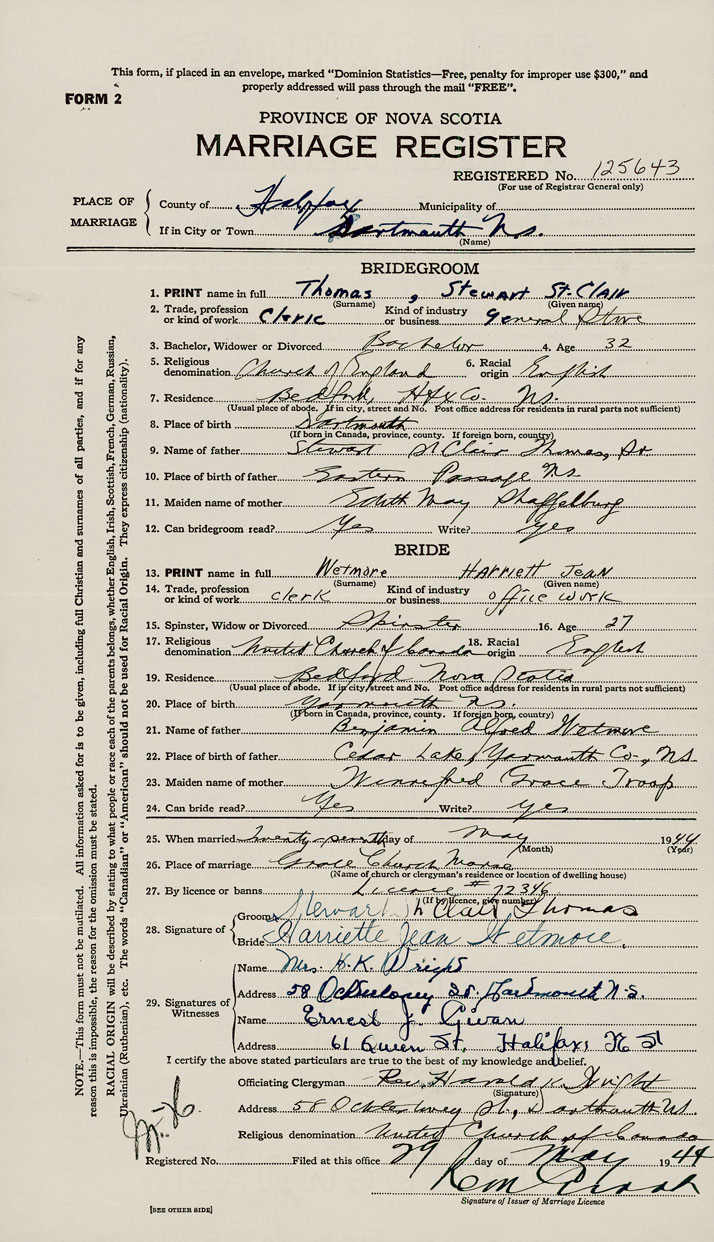 This form, if placed in an envelope, marked "Dominion Statistics—Free, penalty for improper use $300," and
properly addressed will pass through the mail "FREE".
FORM 2
PROVINCE OF NOVA SCOTIA
MARRIAGE REGISTER
REGISTERED No. 125643
(For use of Registrar General only)
PLACE OF MARRIAGE
County of Halifax Municipality of
If in City or Town Dartmouth N.s.
(Name)
BRIDEGROOM
1. PRINT name in full Thomas, Stewart St. Clair
(Surname) (Given name)
2. Trade, profession or kind of work Cleric Kind of industry or business General Store
3. Bachelor, Widower or Divorced Bachelor 4. Age 32
5. Religious denomination Church of England 6. Racial origin English
7. Residence Bedford, Hfx Co. Ns.
(Usual place of abode. If in city, street and No. Post office address for residents in rural parts not sufficient)
8. Place of birth Dartmouth
(If born in Canada, province, county. If foreign born, country)
9. Name of father Stewart St Clair Thomas, Sr
10. Place of birth of father Eastern Passage Ns
11. Maiden name of mother Edith May Shaffelburg
12. Can bridegroom read? Yes Write? yes
BRIDE
13. PRINT name in full Wetmore Harriett Jean
(Surname) (Given name)
14. Trade, profession or kind of work clerk Kind of industry or business office work
15. Spinster, Widow or Divorced Spinster 16. Age 27
17. Religious denomination United Church of Canada 18. Racial origin English
19. Residence Bedford Nova Scotia
(Usual place of abode. If in city, street and No. Post office address for residents in rural parts not sufficient)
20. Place of birth Yarmouth Ns.
(If born in Canada, province, county. If foreign born, country)
21. Name of father Benjamin Alfred Wetmore
22. Place of birth of father Cedar Lake, Yarmouth Co., NS.
23. Maiden name of mother Winnefred Grace Troop
24. Can bride read? Yes Write? yes
25. When married Twenty-seventh day of May 1944
(Month) (Year)
26. Place of marriage Grace Church Manse
(Name of church or clergyman's residence or location of dwelling house)
27. By licence or banns Licence # 72346
(If by licence, give number)
28. Signature of
Groom Stewart St Clair Thomas
Bride Harriette Jean Wetmore.
29. Signatures of Witnesses
Name Mrs. H. K. Wright
Address 58 Ochterloney St. Dartmouth N.S.
Name Ernest J. Givan
Address 61 Queen St. Halifax, N S
I certify the above stated particulars are true to the best of my knowledge and belief.
Officiating Clergyman Rev. Harold K. Wright
(Signature)
Address 58 Ochterloney St., Dartmouth Ns.
Religious denomination United Church of Canada
Registered No. Filed at this office 29 day of May 1944
Signature of Issuer of Marriage Licence
[SEE OTHER SIDE]
NOTE.—This form must not be mutilated. All information asked for is to be given, including full Christian and surnames of all parties, and if for any
reason this is impossible, the reason for the omission must be stated.
RACIAL ORIGIN will be described by stating to what people or race each of the parents belongs, whether English, Irish, Scottish, French, German, Russian,
Ukrainian (Ruthenian), etc. The words "Canadian" or "American" should not be used for Racial Origin. They express citizenship (nationality).